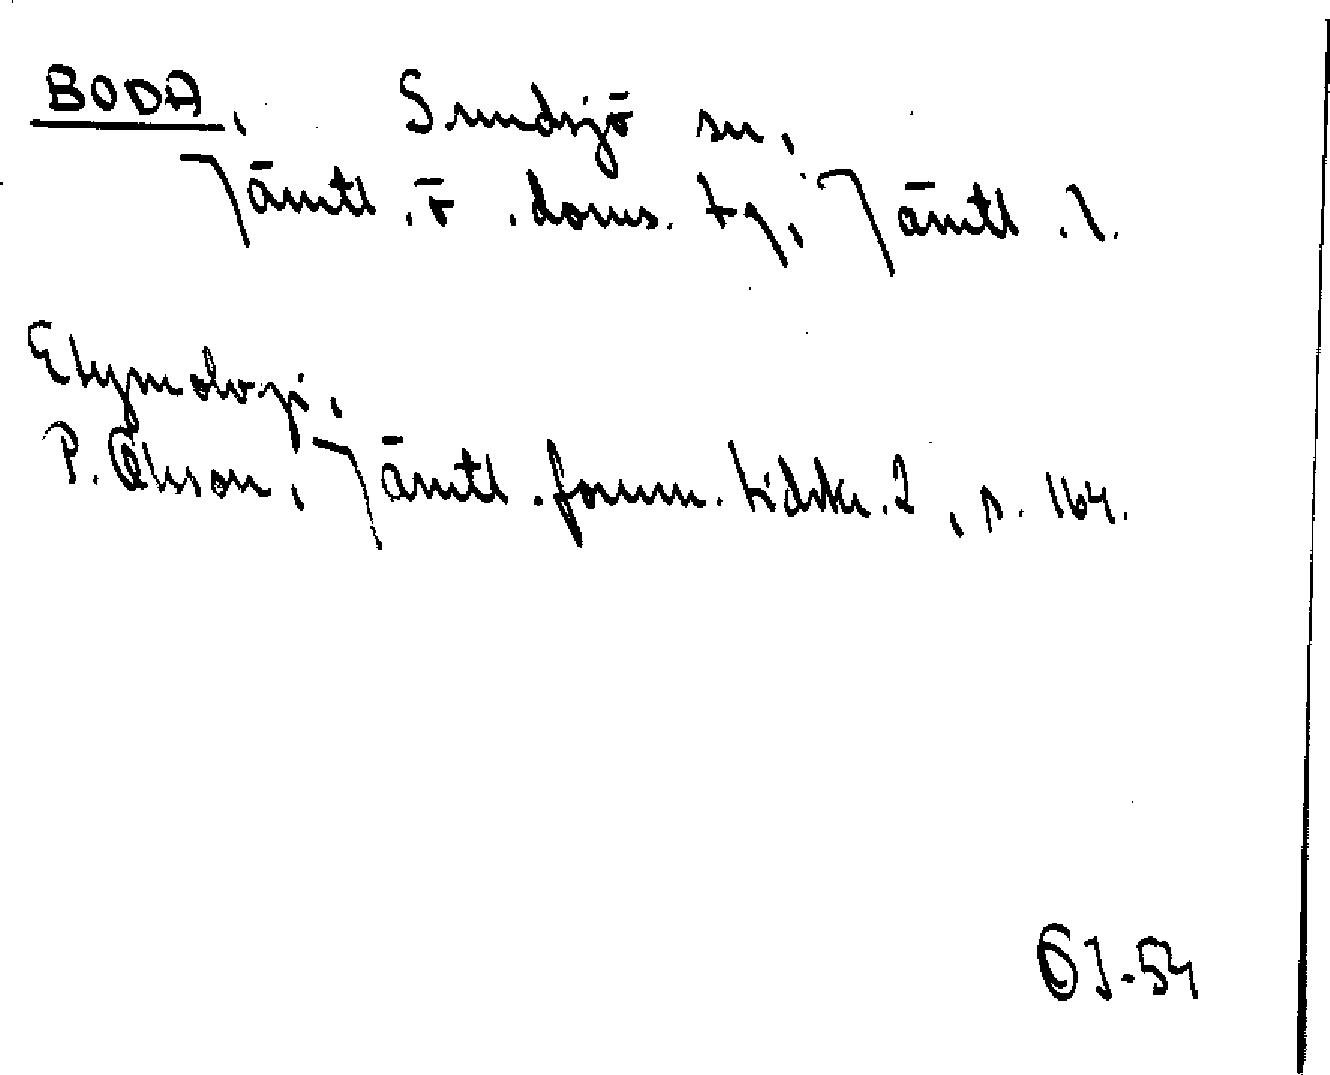 BODA, Sundsjö sn,
Jämtl.ö.doms.tg, Jämtl.l.
Etymologi,
P. Olsson, Jämtl.fornm.tidskr.2, s. 164.
OJ-54